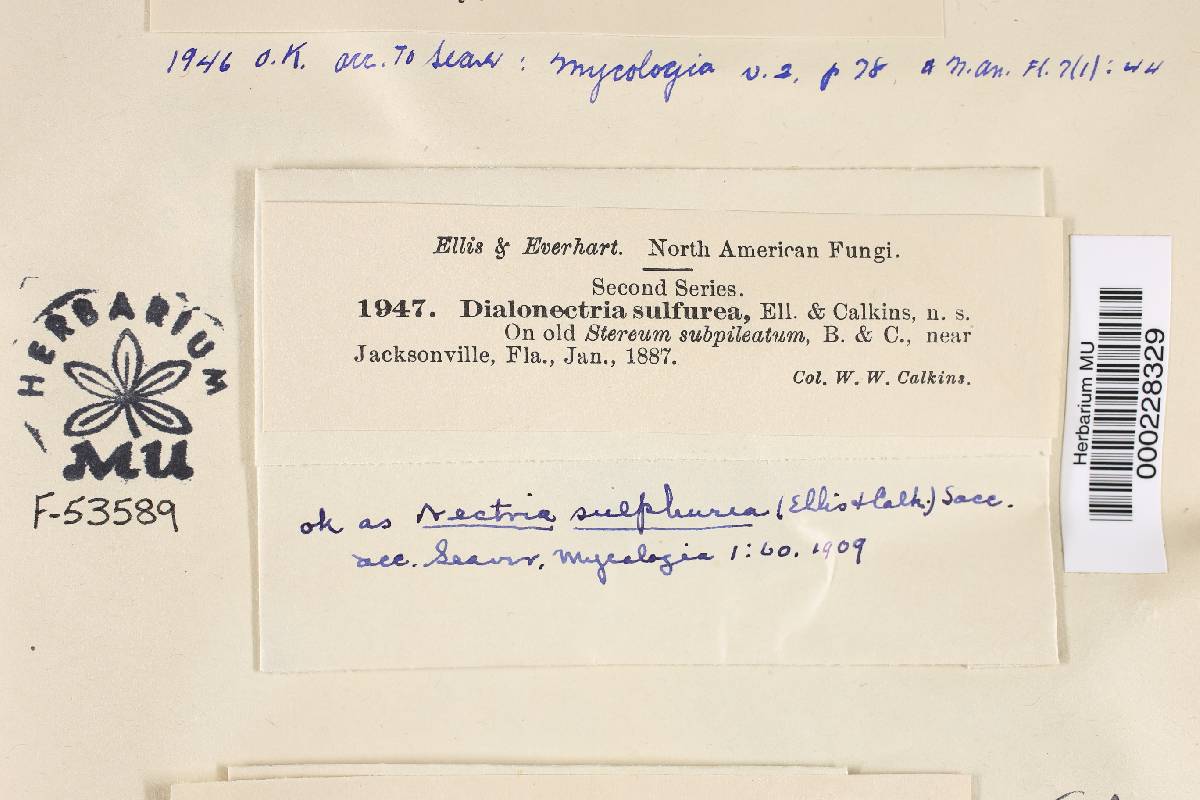 1946 O.K. acc. To Seaver : Mycologia v. 2, p 78 & N. Am. Fl. 7(1): 44
Ellis & Everhart. North American Fungi.
Second Series.
1947. Dialonectria sulfurea, Ell. & Calkins, n. s.
On old Stereum subpileatum, B. & C., near
Jacksonville, Fla., Jan., 1887.
Col. W. W. Calkins.
HERBARIUM
MU
F-53589
Herbarium MU
000228329
ok as Nectria sulphurea (Ellis & Calk.) Sacc.
acc. Seaver, Mycologia 1:60. 1909